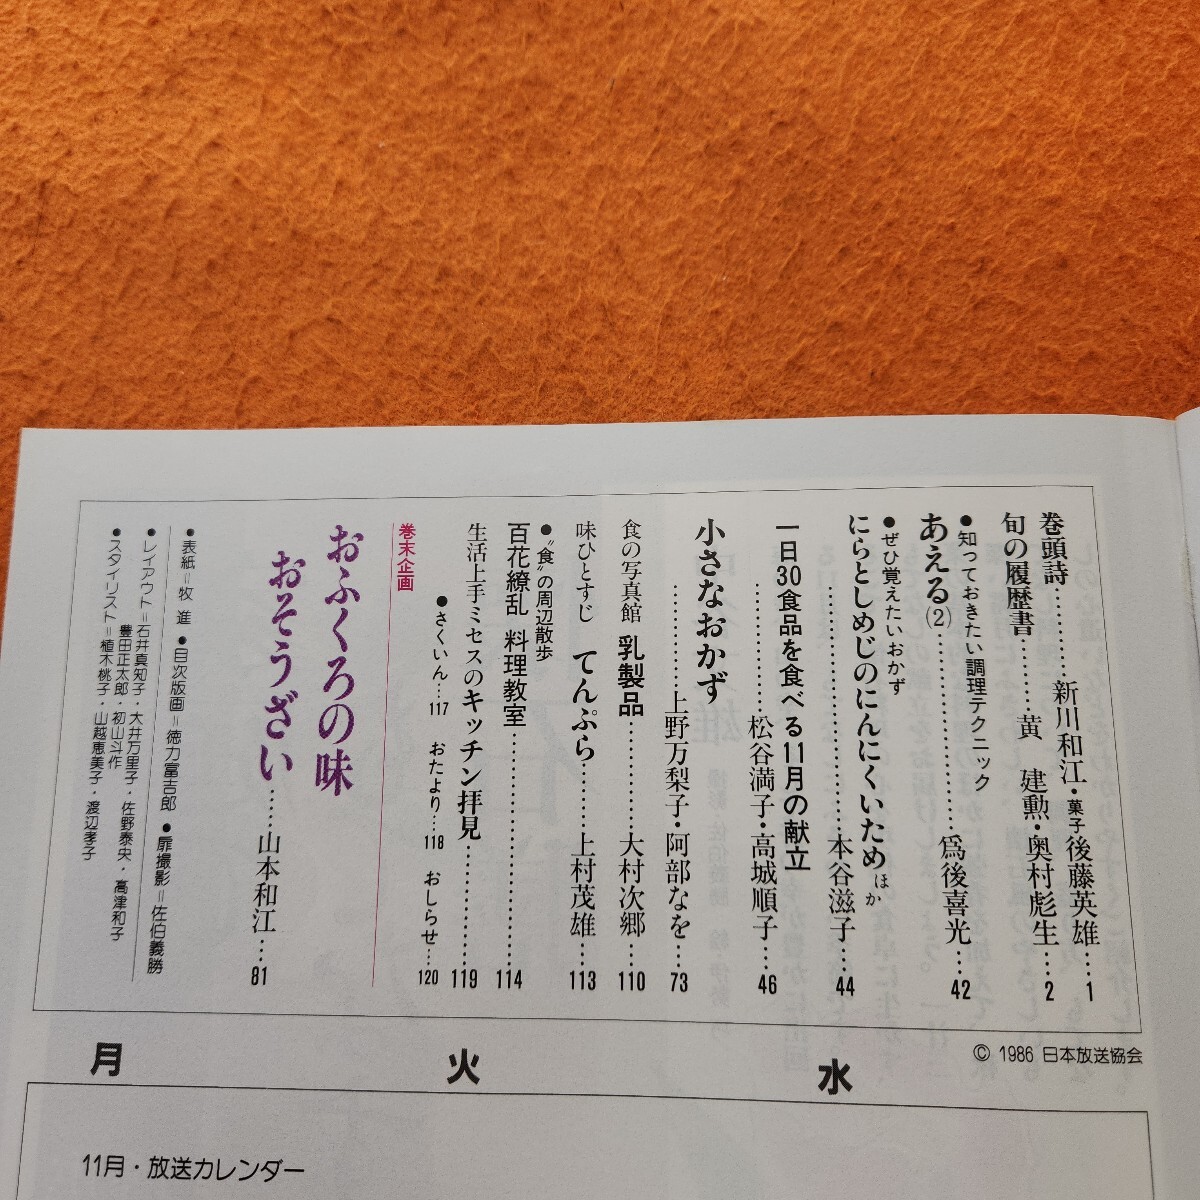 巻頭詩………新川和江・菓子後藤英雄…1
旬の履歴書………黄 建勲・奥村彪生…2
●知っておきたい調理テクニック
あえる(2)………………爲後喜光…42
●ぜひ覚えたいおかず
にらとしめじのにんにくいためほか
………本谷滋子…44
一日30食品を食べる11月の献立
………………松谷満子・高城順子…46
小さなおかず
………………上野万梨子・阿部なを…73
食の写真館 乳製品………………大村次郷…110
味ひとすじ てんぷら………………上村茂雄…113
●“食”の周辺散歩
百花繚乱 料理教室………………114
生活上手ミセスのキッチン拝見………………119
●さくいん…117 おたより…118 おしらせ…120
巻末企画
おふくろの味
おそうざい……山本和江…81
●表紙＝牧 進 ●目次版画＝徳力富吉郎 ●扉撮影＝佐伯義勝
●レイアウト＝石井真知子・大井万里子・佐野泰央・高津和子
豊田正太郎・初山斗作
●スタイリスト＝植木桃子・山越恵美子・渡辺孝子
© 1986 日本放送協会
月 火 水
11月・放送カレンダー